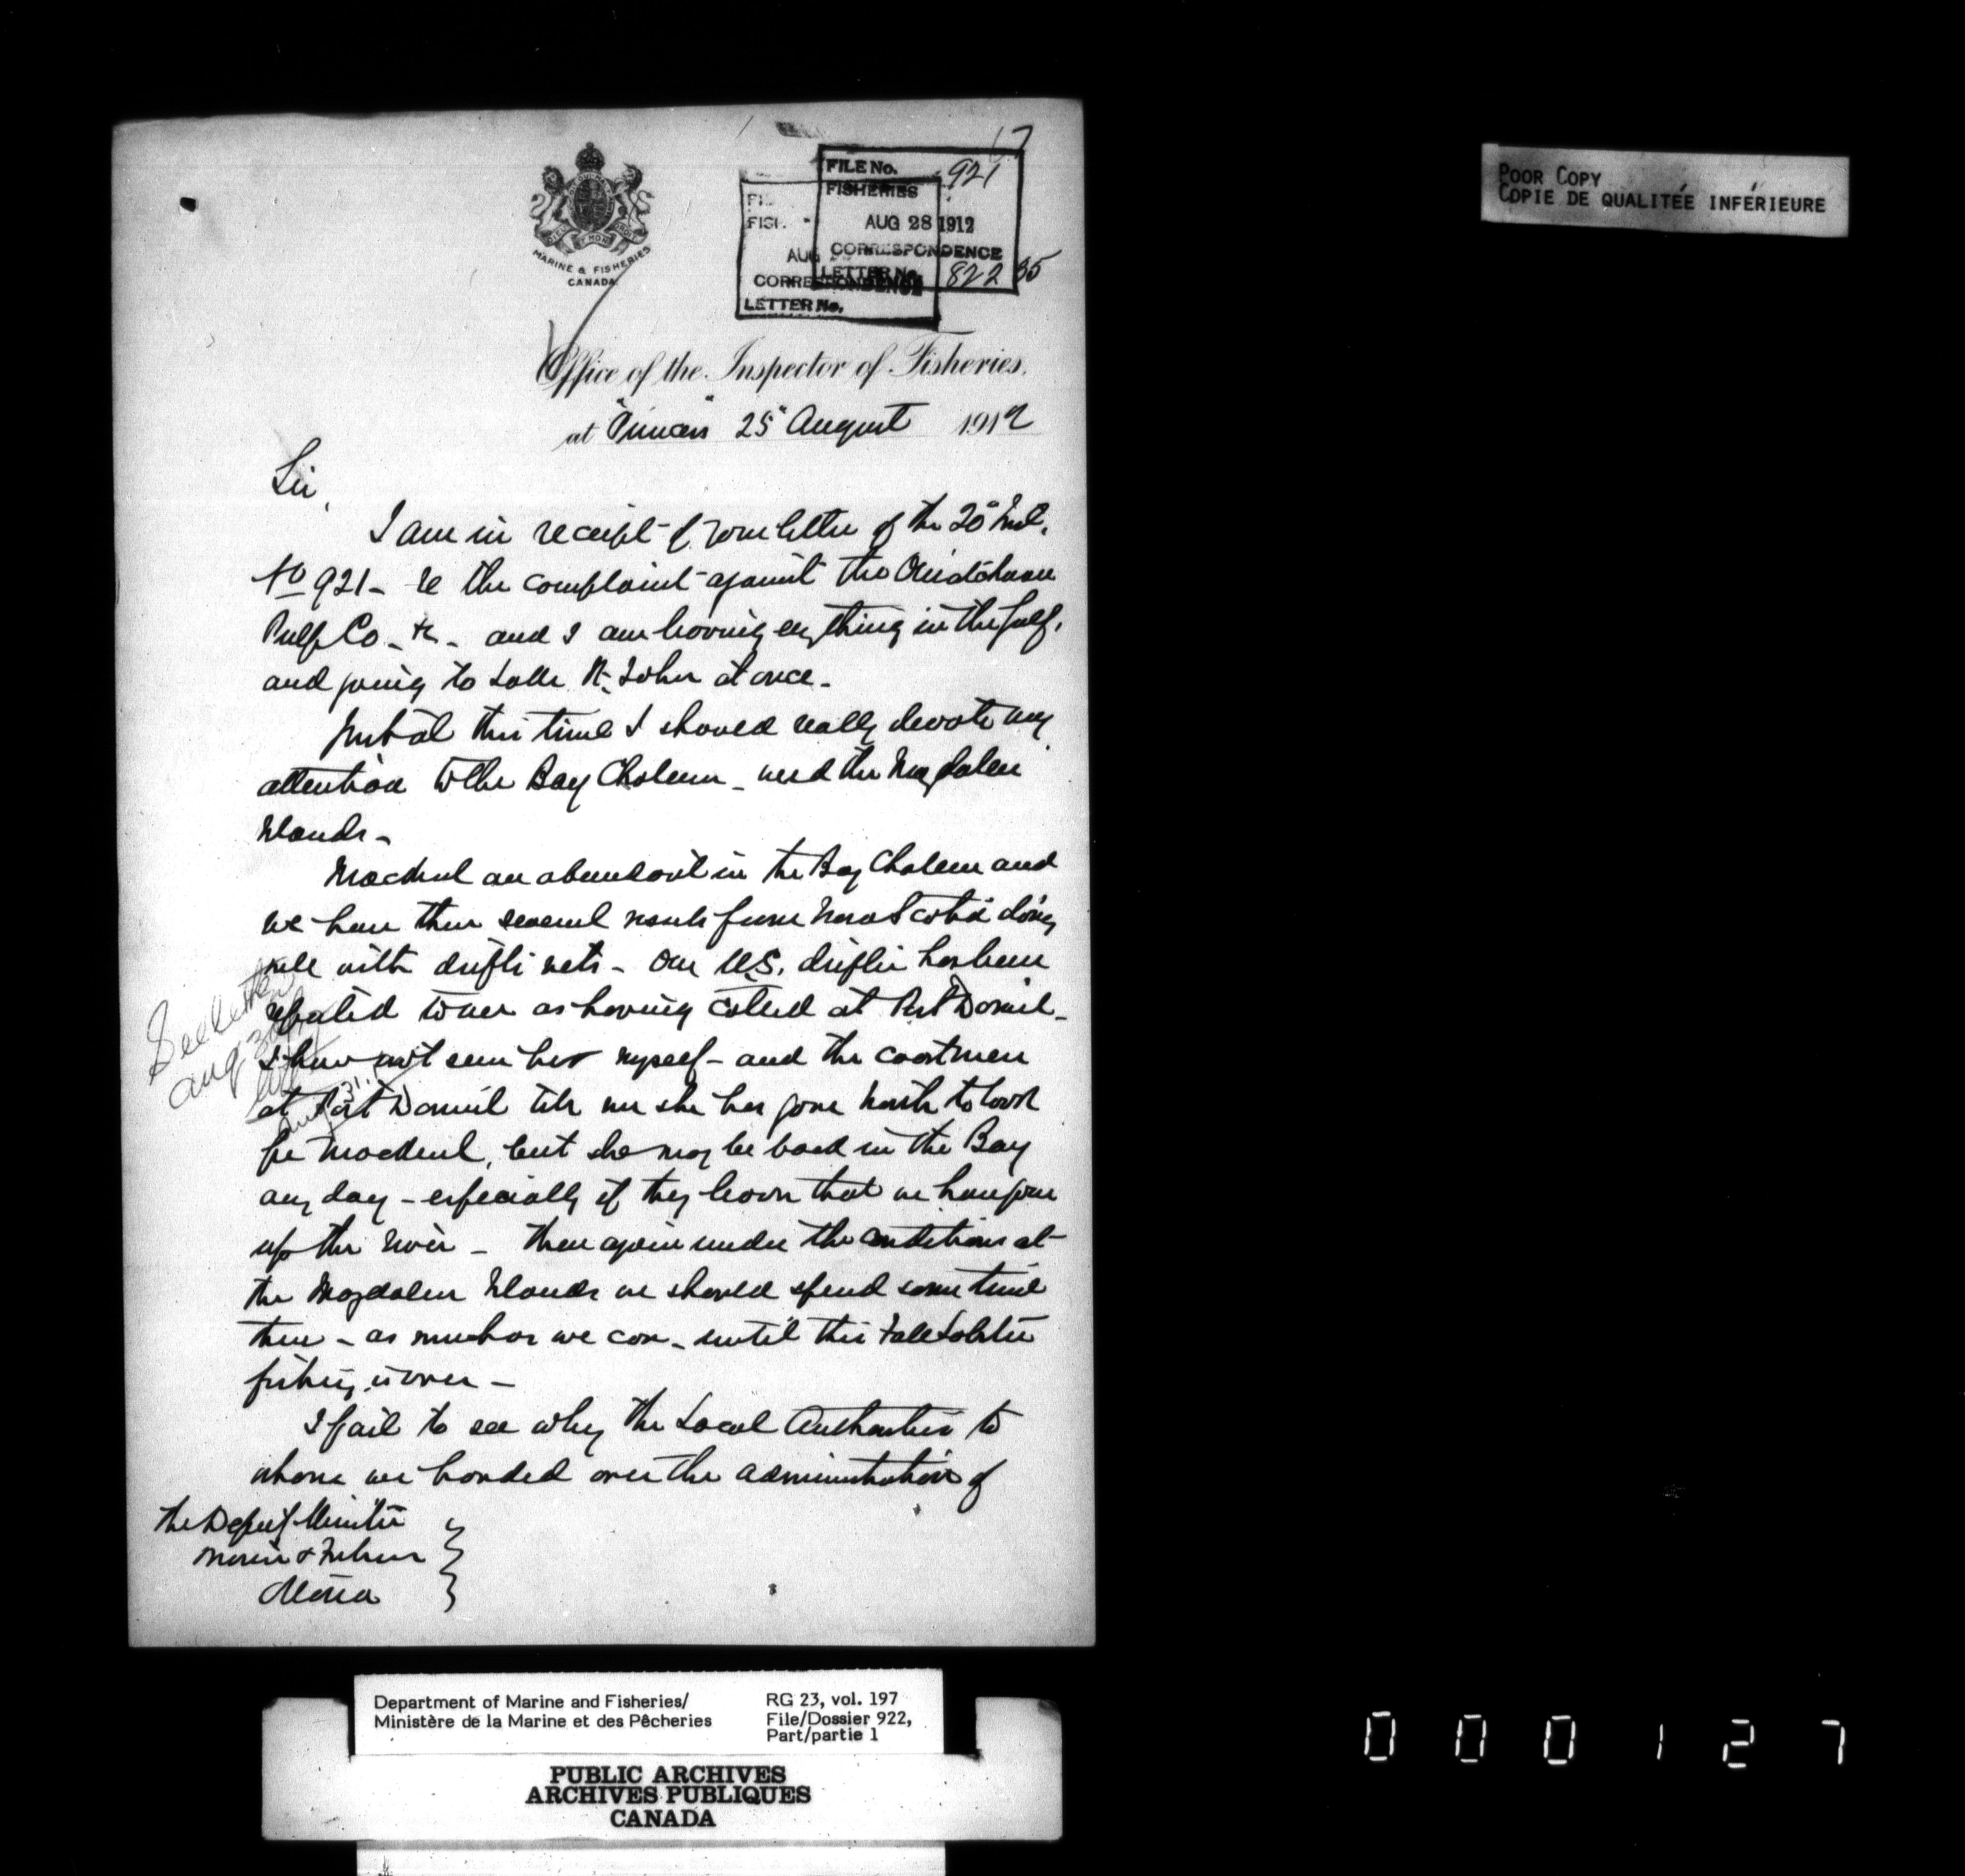 17
FILE No. 921
FISHERIES
AUG 28 1912
CORRESPONDENCE
LETTER No. 82235
FISH
AUG
CORRESPONDENCE
LETTER No.
MARINE & FISHERIES
CANADA
POOR COPY
COPIE DE QUALITÉE INFÉRIEURE
Office of the Inspector of Fisheries.
at "Princess" 25" August 1912
Sir,
I am in receipt of your letter of the 20" Inst.
No 921 - re the complaint against the Ouiatchouan
Pulp Co - &c - and I am leaving everything in the Gulf,
and going to Lake St. John at once -
Just at this time I should really devote my
attention to the Bay Chaleur - and the Magdalen
Islands -
Mackerel are abundant in the Bay Chaleur and
we have there several vessels from Nova Scotia doing
well with drift nets - One U.S. drifter has been
reported to me as having called at Port Daniel -
I have not seen her myself - and the coastmen
at Port Daniel tell me she has gone North to look
for Mackerel, but she may be back in the Bay
any day - especially if they learn that we have gone
up the River - Then again under the conditions at
the Magdalen Islands we should spend some time
there - as much as we can - until this Fall Lobster
fishing is over -
I fail to see why the Local Authorities to
whom we handed over the administration of
See letter
Aug 30
Aug 31.
The Deputy Minister
Marine & Fisheries
Ottawa
Department of Marine and Fisheries/
Ministère de la Marine et des Pêcheries
RG 23, vol. 197
File/Dossier 922,
Part/partie 1
PUBLIC ARCHIVES
ARCHIVES PUBLIQUES
CANADA
000127